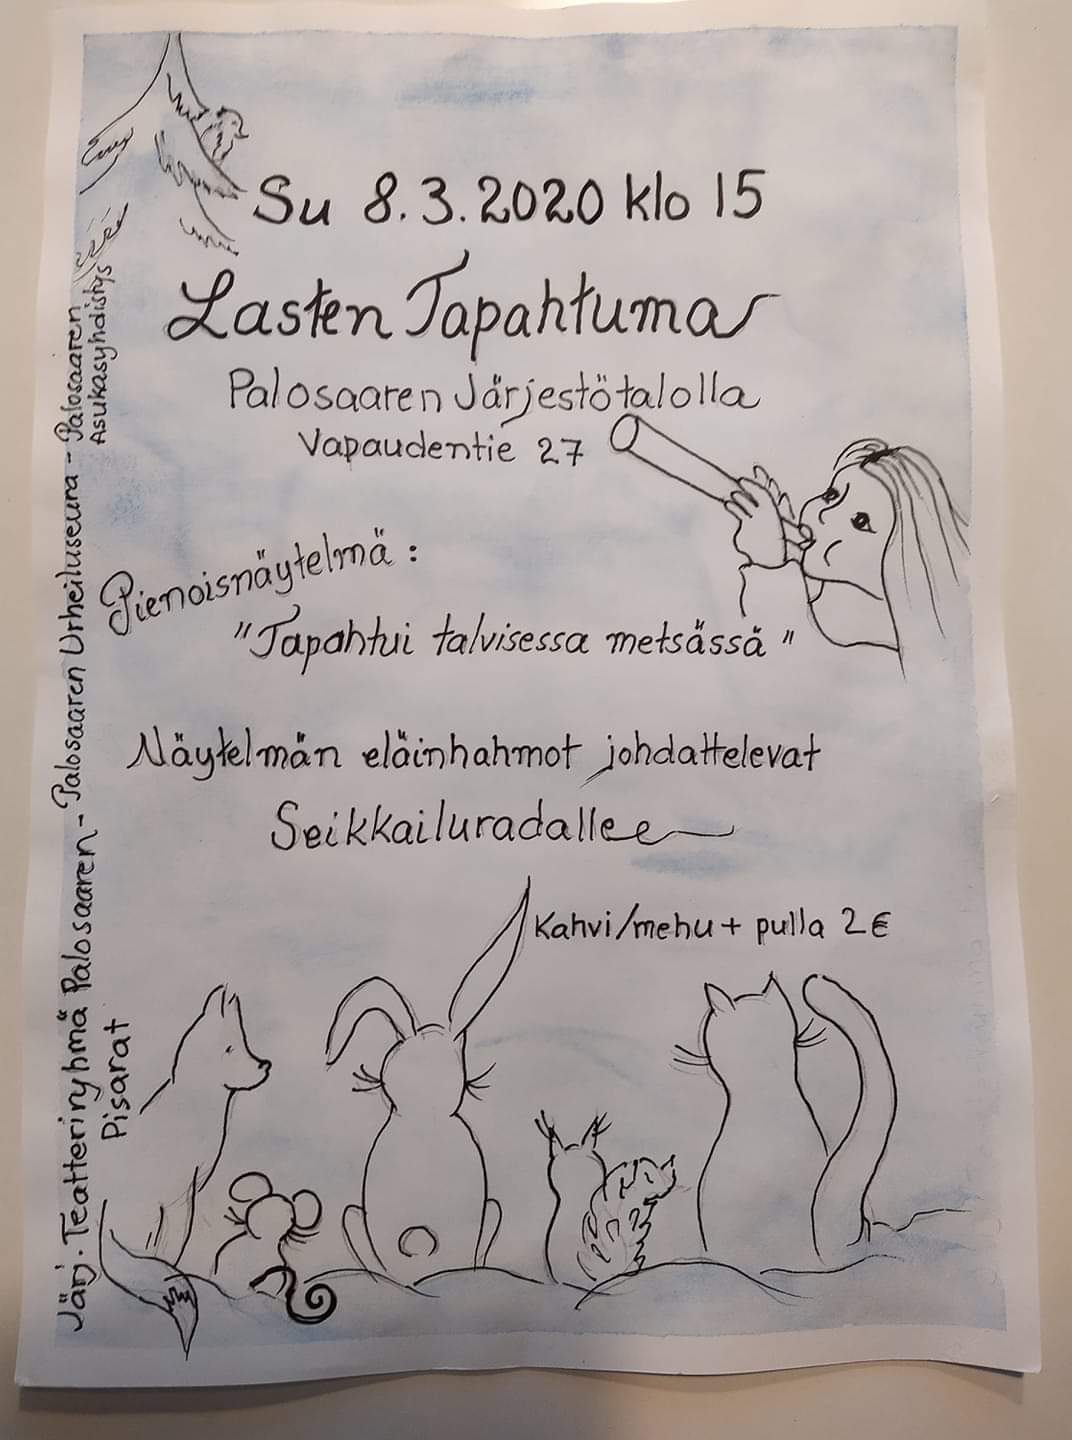 Su 8.3.2020 klo 15
Lasten Tapahtuma
Palosaaren Järjestötalolla
Vapaudentie 27
Pienoisnäytelmä:
"Tapahtui talvisessa metsässä"
Näytelmän eläinhahmot johdattelevat
Seikkailuradalle
Kahvi/mehu + pulla 2€
Järj. Teatteriryhmä Palosaaren - Palosaaren Urheiluseura - Palosaaren
Pisarat
Asukasyhdistys